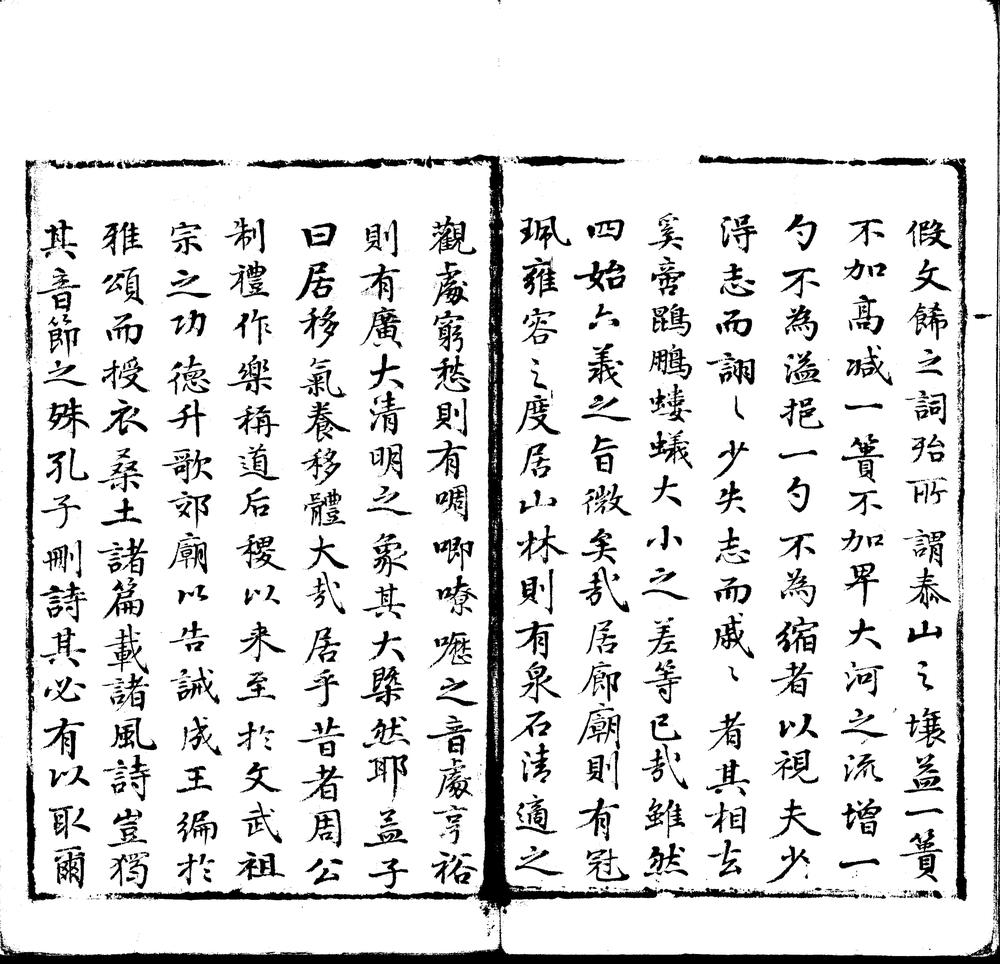 假文餙之詞殆所謂泰山之壤益一簣
不加髙减一簣不加卑大河之流增一
勺不為溢挹一勺不為缩者以視夫少
得志而詡〻少失志而戚〻者其相去
奚啻鵾鵬蝼蟻大小之差等已㢤雖然
四始六義之旨微矣㢤居廊廟則有冠
珮雍容之度居山林則有泉石清適之
觀處窮愁則有啁唧嘹嚦之音處亨裕
則有廣大清明之象其大槩然耶孟子
曰居移氣養移體大㢤居乎昔者周公
制禮作樂稱道后稷以来至於文武祖
宗之功德升歌郊廟以告諴成王編於
雅頌而授衣桑土諸篇載諸風詩豈獨
其音節之殊孔子刪詩其必有以取爾